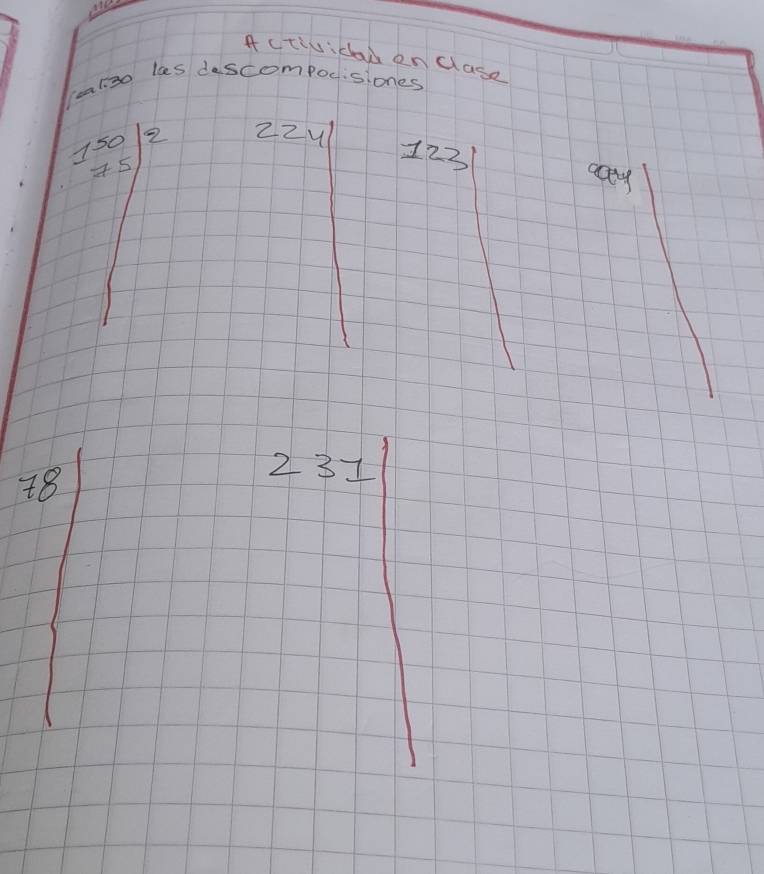 Actividad en clase
realizo las descomposiciones
150 2 224 123
75
78 231